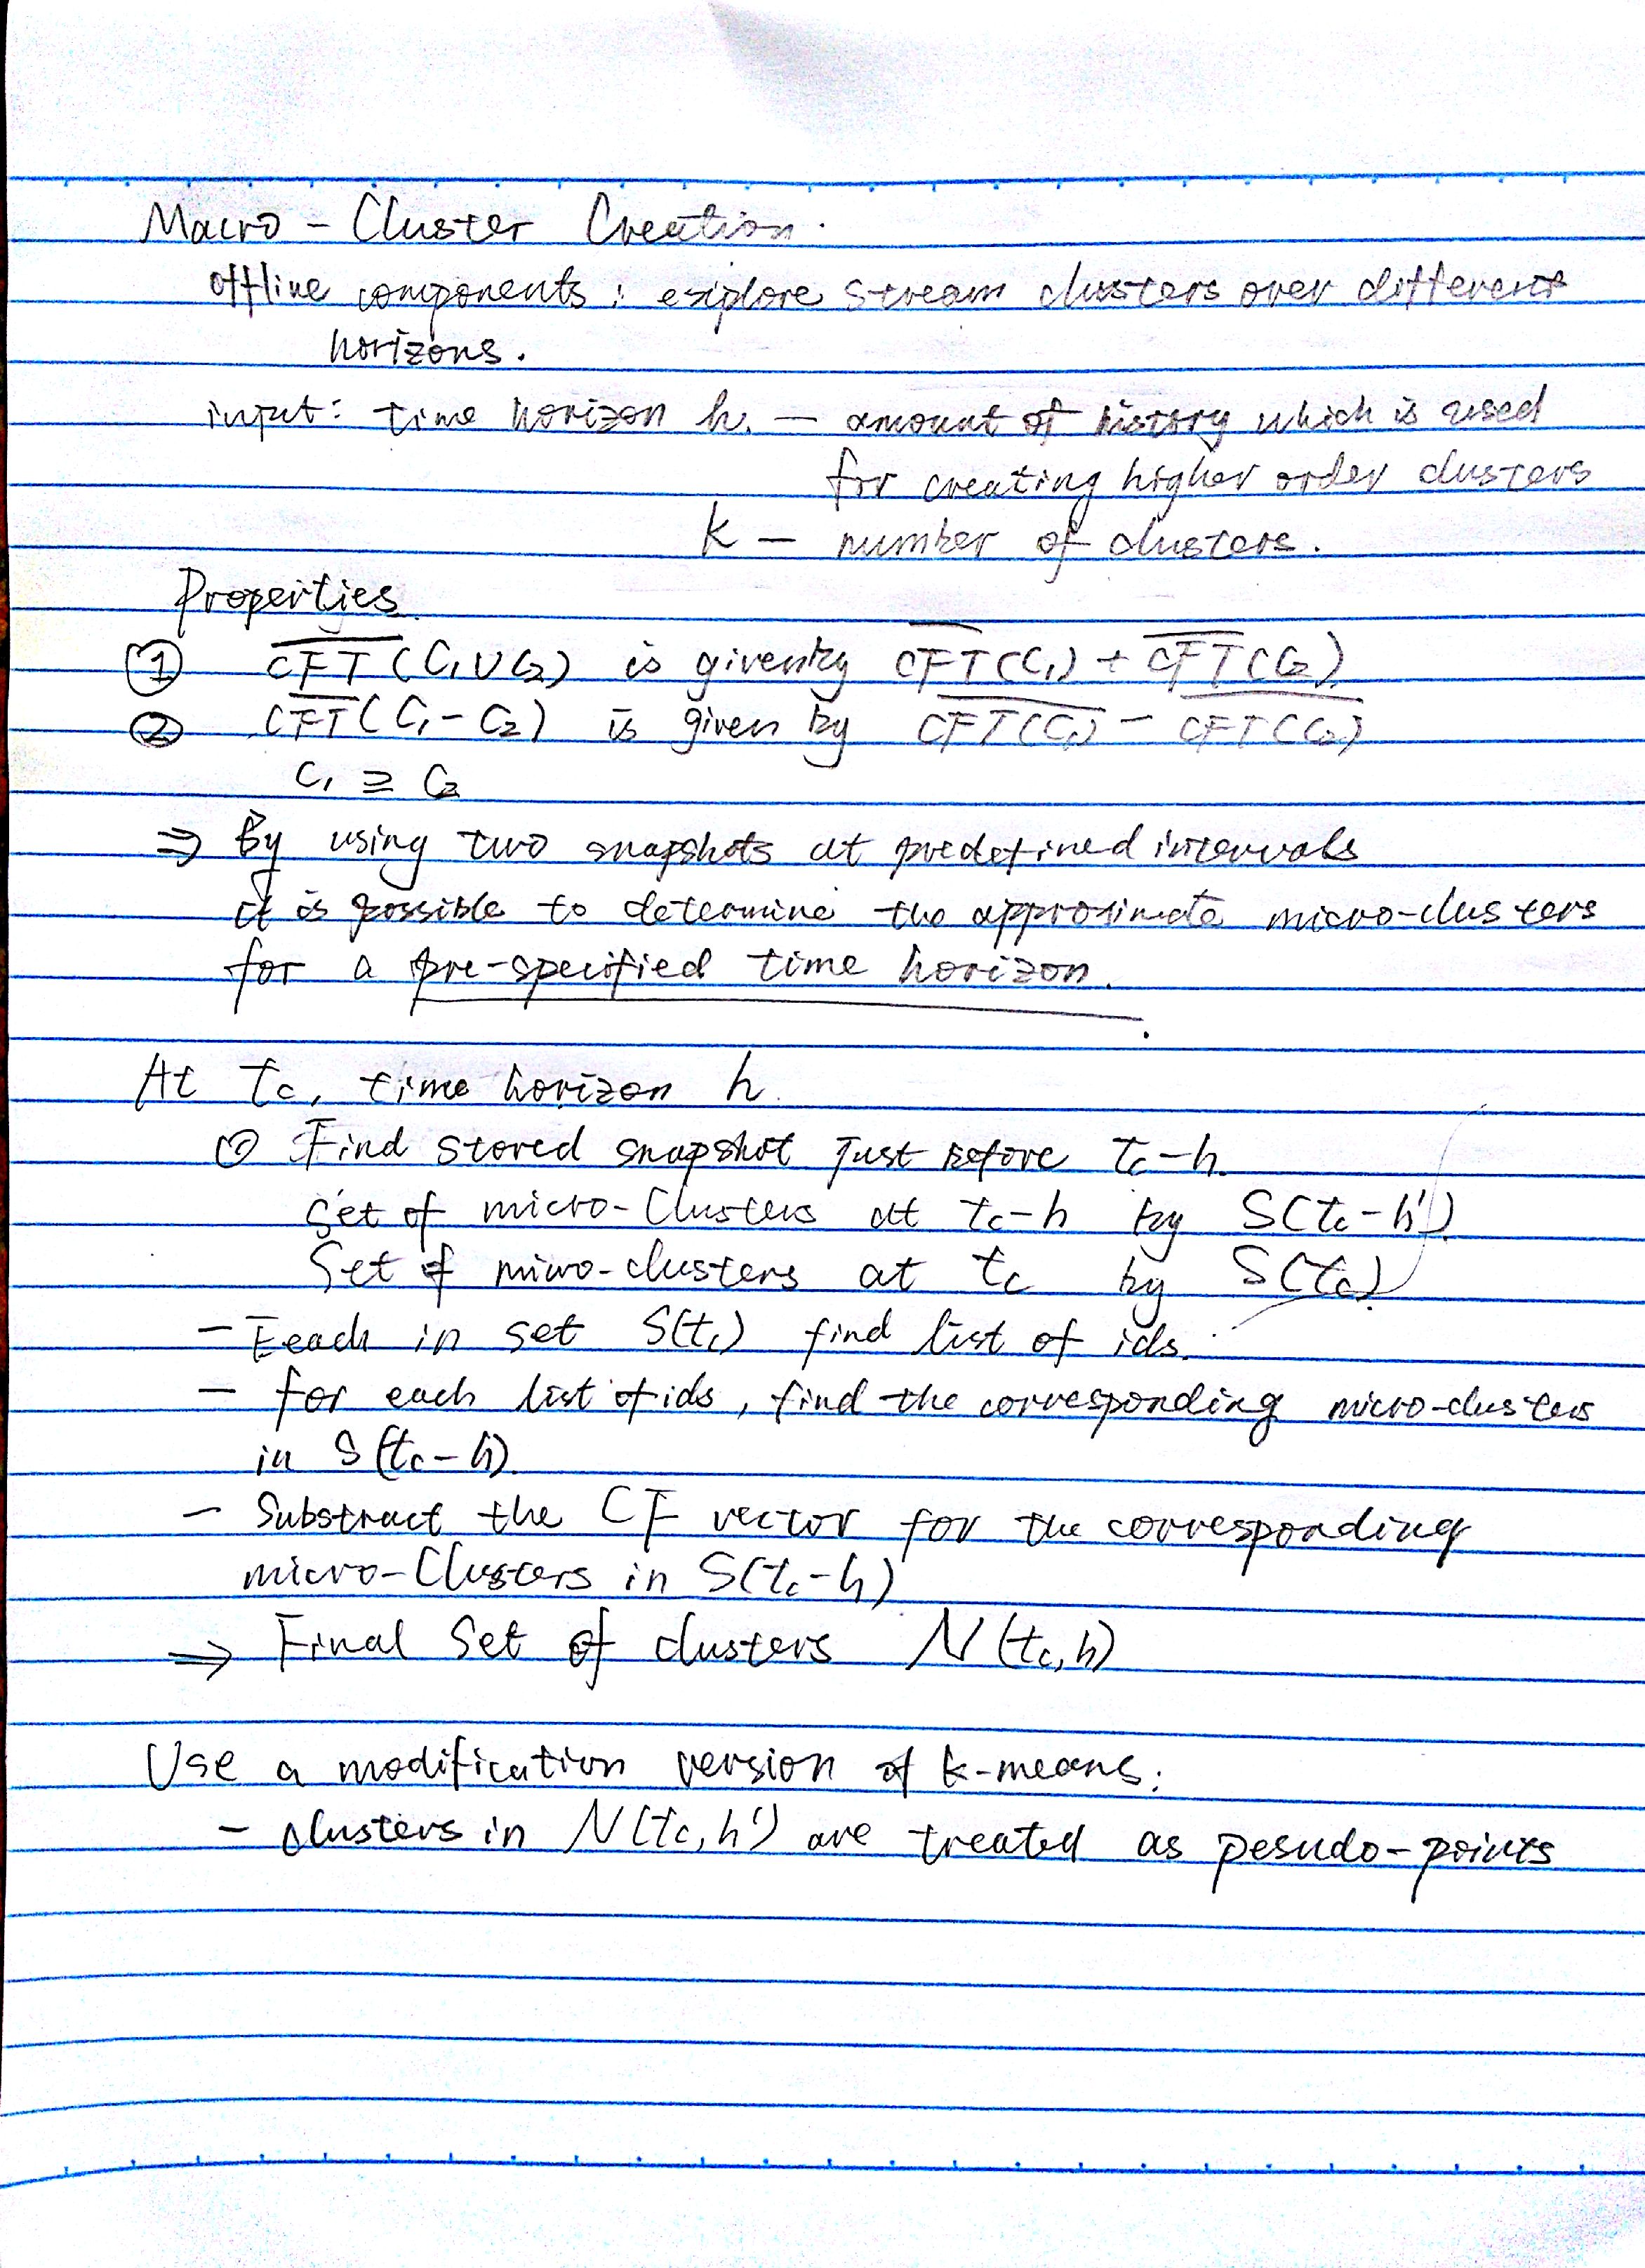 Macro - Cluster Creation.
offline components : explore stream clusters over different
horizons.
input: time horizon h. — amount of history which is used
for creating higher order clusters
k — number of clusters.
Properties
① CFT(C₁∪C₂) is given by CFT(C₁) + CFT(C₂)
② CFT(C₁-C₂) is given by CFT(C₁) - CFT(C₂)
C₁ ⊇ C₂
⇒ By using two snapshots at predefined intervals
it is possible to determine the approximate micro-clusters
for a pre-specified time horizon.
At tc, time horizon h
① Find stored snapshot just before tc-h.
Set of micro-Clusters at tc-h by S(tc-h')
Set of micro-clusters at tc by S(tc)
- Eeach in set S(tc) find list of ids.
- for each list of ids, find the corresponding micro-clusters
in S(tc-h).
- Substract the CF vector for the corresponding
micro-Clusters in S(tc-h)
⇒ Final Set of clusters N(tc,h)
Use a modification version of k-means:
- clusters in N(tc,h') are treated as pesudo-points